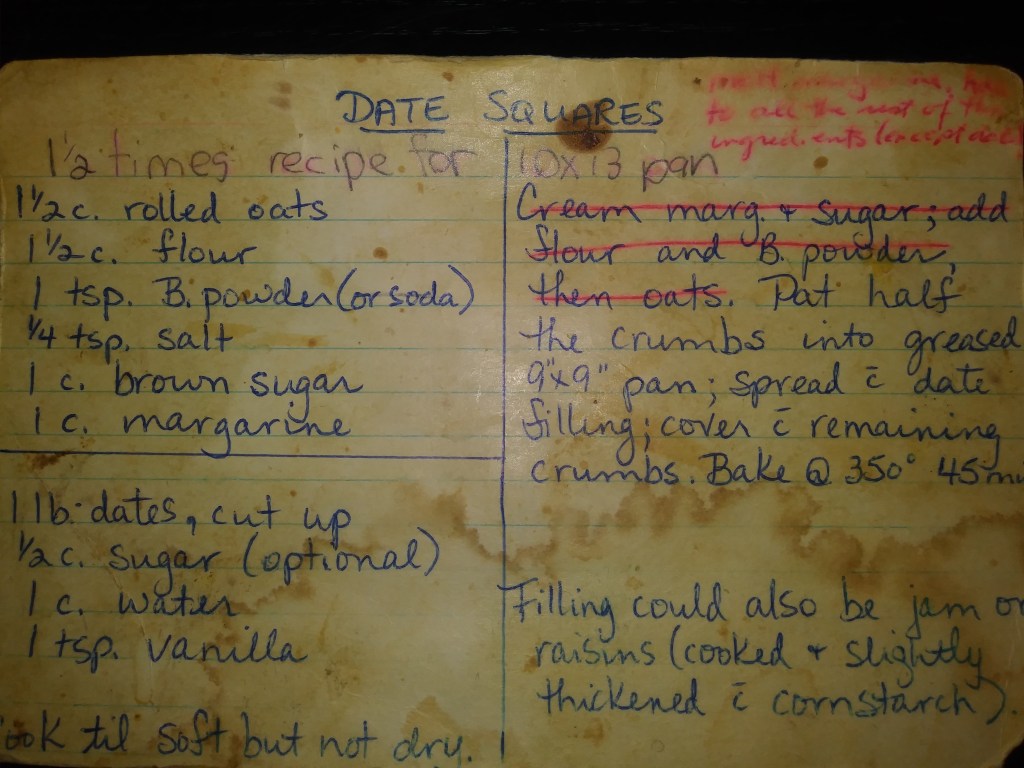 DATE SQUARES
melt margarine,
to all the rest of the
ingredients (except
1 1/2 times recipe for 10x13 pan
1 1/2 c. rolled oats
1 1/2 c. flour
1 tsp. B. powder (or soda)
1/4 tsp. salt
1 c. brown sugar
1 c. margarine
1 lb. dates, cut up
1/2 c. sugar (optional)
1 c. water
1 tsp. vanilla
ook til soft but not dry.
Cream marg. + sugar; add
flour and B. powder,
then oats. Pat half
the crumbs into greased
9"x9" pan; spread c̄ date
filling; cover c̄ remaining
crumbs. Bake @ 350° 45
Filling could also be jam or
raisins (cooked + slightly
thickened c̄ cornstarch).